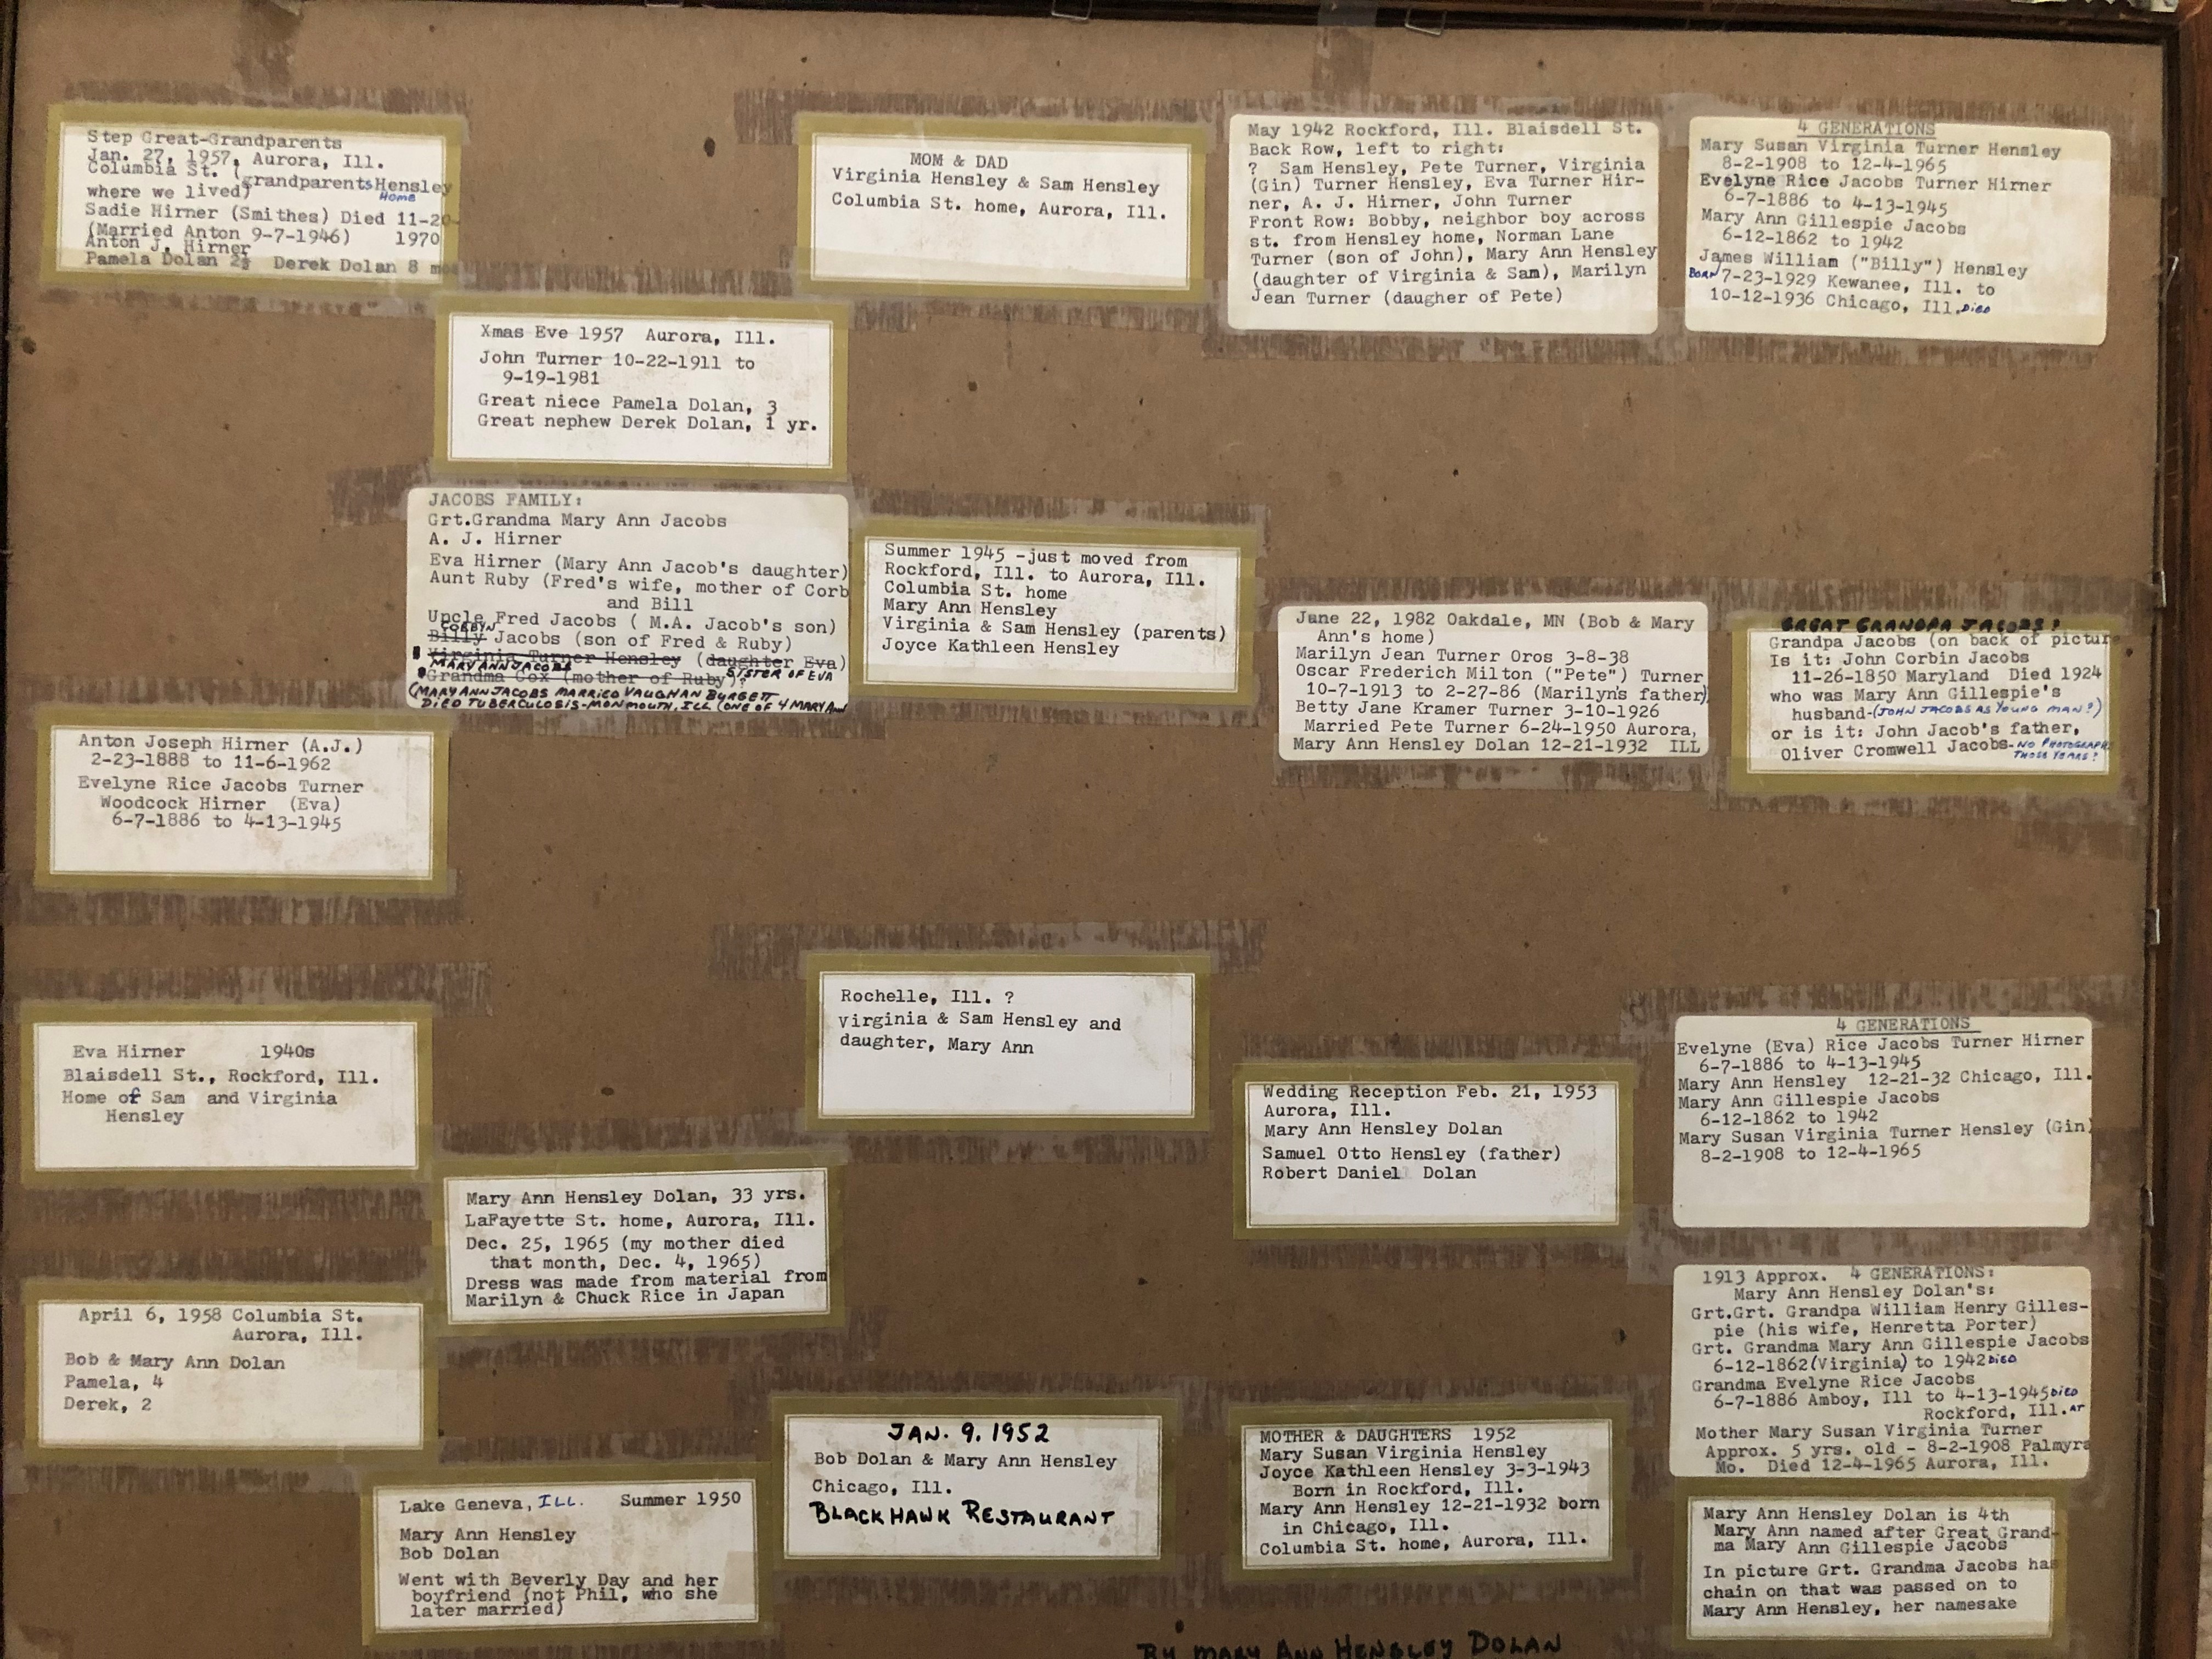 Step Great-Grandparents
Jan. 27, 1957, Aurora, Ill.
Columbia St. (grandparents Hensley
where we lived) HOME
Sadie Hirner (Smithes) Died 11-20-
(Married Anton 9-7-1946) 1970
Anton J. Hirner
Pamela Dolan 2½ Derek Dolan 8 mo
MOM & DAD
Virginia Hensley & Sam Hensley
Columbia St. home, Aurora, Ill.
May 1942 Rockford, Ill. Blaisdell St.
Back Row, left to right:
? Sam Hensley, Pete Turner, Virginia
(Gin) Turner Hensley, Eva Turner Hir-
ner, A. J. Hirner, John Turner
Front Row: Bobby, neighbor boy across
st. from Hensley home, Norman Lane
Turner (son of John), Mary Ann Hensley
(daughter of Virginia & Sam), Marilyn
Jean Turner (daugher of Pete)
4 GENERATIONS
Mary Susan Virginia Turner Hensley
8-2-1908 to 12-4-1965
Evelyne Rice Jacobs Turner Hirner
6-7-1886 to 4-13-1945
Mary Ann Gillespie Jacobs
6-12-1862 to 1942
James William ("Billy") Hensley
BORN 7-23-1929 Kewanee, Ill. to
10-12-1936 Chicago, Ill. DIED
Xmas Eve 1957 Aurora, Ill.
John Turner 10-22-1911 to
9-19-1981
Great niece Pamela Dolan, 3
Great nephew Derek Dolan, 1 yr.
JACOBS FAMILY:
Grt.Grandma Mary Ann Jacobs
A. J. Hirner
Eva Hirner (Mary Ann Jacob's daughter)
Aunt Ruby (Fred's wife, mother of Corb
and Bill
Uncle Fred Jacobs ( M.A. Jacob's son)
CORBYN
Billy Jacobs (son of Fred & Ruby)
Virginia Turner Hensley (daughter Eva)
MARY ANN JACOBS SISTER OF EVA
Grandma Cox (mother of Ruby)?
(MARY ANN JACOBS MARRIED VAUGHAN BURGETT
DIED TUBERCULOSIS-MONMOUTH, ILL (ONE OF 4 MARY Ann
Summer 1945 -just moved from
Rockford, Ill. to Aurora, Ill.
Columbia St. home
Mary Ann Hensley
Virginia & Sam Hensley (parents)
Joyce Kathleen Hensley
June 22, 1982 Oakdale, MN (Bob & Mary
Ann's home)
Marilyn Jean Turner Oros 3-8-38
Oscar Frederich Milton ("Pete") Turner
10-7-1913 to 2-27-86 (Marilyn's father)
Betty Jane Kramer Turner 3-10-1926
Married Pete Turner 6-24-1950 Aurora,
Mary Ann Hensley Dolan 12-21-1932 ILL
GREAT GRANDPA JACOBS?
Grandpa Jacobs (on back of picture
Is it: John Corbin Jacobs
11-26-1850 Maryland Died 1924
who was Mary Ann Gillespie's
husband-(JOHN JACOBS AS YOUNG MAN?)
or is it: John Jacob's father,
Oliver Cromwell Jacobs-NO PHOTOGRAPHS
THOSE YEARS?
Anton Joseph Hirner (A.J.)
2-23-1888 to 11-6-1962
Evelyne Rice Jacobs Turner
Woodcock Hirner (Eva)
6-7-1886 to 4-13-1945
Eva Hirner 1940s
Blaisdell St., Rockford, Ill.
Home of Sam and Virginia
Hensley
Rochelle, Ill. ?
Virginia & Sam Hensley and
daughter, Mary Ann
Wedding Reception Feb. 21, 1953
Aurora, Ill.
Mary Ann Hensley Dolan
Samuel Otto Hensley (father)
Robert Daniel Dolan
4 GENERATIONS
Evelyne (Eva) Rice Jacobs Turner Hirner
6-7-1886 to 4-13-1945
Mary Ann Hensley 12-21-32 Chicago, Ill.
Mary Ann Gillespie Jacobs
6-12-1862 to 1942
Mary Susan Virginia Turner Hensley (Gin)
8-2-1908 to 12-4-1965
Mary Ann Hensley Dolan, 33 yrs.
LaFayette St. home, Aurora, Ill.
Dec. 25, 1965 (my mother died
that month, Dec. 4, 1965)
Dress was made from material from
Marilyn & Chuck Rice in Japan
April 6, 1958 Columbia St.
Aurora, Ill.
Bob & Mary Ann Dolan
Pamela, 4
Derek, 2
1913 Approx. 4 GENERATIONS:
Mary Ann Hensley Dolan's:
Grt.Grt. Grandpa William Henry Gilles-
pie (his wife, Henretta Porter)
Grt. Grandma Mary Ann Gillespie Jacobs
6-12-1862(Virginia) to 1942 DIED
Grandma Evelyne Rice Jacobs
6-7-1886 Amboy, Ill to 4-13-1945 DIED
Rockford, Ill. AT
Mother Mary Susan Virginia Turner
Approx. 5 yrs. old - 8-2-1908 Palmyra
Mo. Died 12-4-1965 Aurora, Ill.
Lake Geneva, ILL. Summer 1950
Mary Ann Hensley
Bob Dolan
Went with Beverly Day and her
boyfriend (not Phil, who she
later married)
JAN. 9, 1952
Bob Dolan & Mary Ann Hensley
Chicago, Ill.
BLACKHAWK RESTAURANT
MOTHER & DAUGHTERS 1952
Mary Susan Virginia Hensley
Joyce Kathleen Hensley 3-3-1943
Born in Rockford, Ill.
Mary Ann Hensley 12-21-1932 born
in Chicago, Ill.
Columbia St. home, Aurora, Ill.
Mary Ann Hensley Dolan is 4th
Mary Ann named after Great Grand-
ma Mary Ann Gillespie Jacobs
In picture Grt. Grandma Jacobs has
chain on that was passed on to
Mary Ann Hensley, her namesake
BY MARY ANN HENSLEY DOLAN